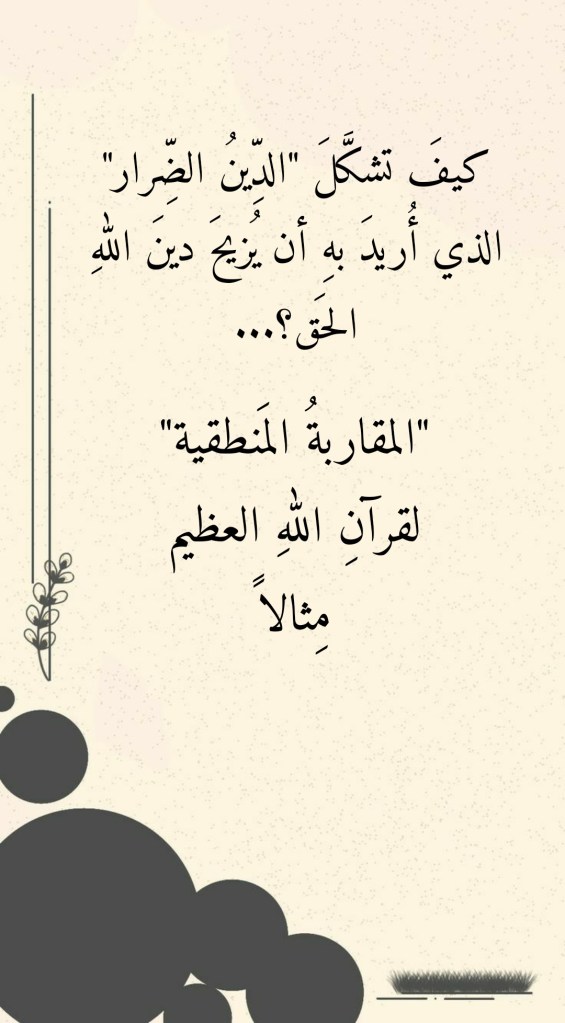 كيفَ تشكَّلَ "الدِّينُ الضِّرار"
الذي أُريدَ بهِ أن يُزيحَ دينَ اللهِ
الحَق؟...
"المقاربةُ المَنطقية"
لقرآنِ اللهِ العظيم
مِثالاً